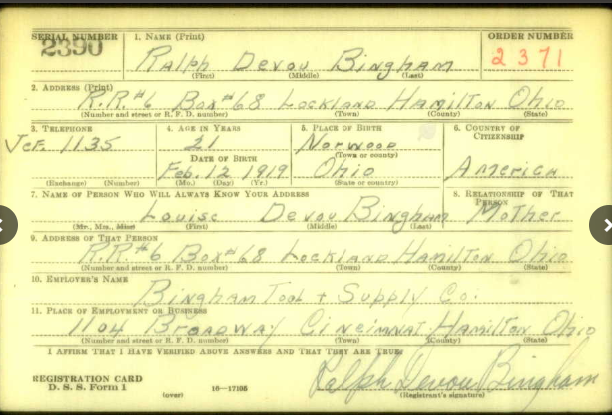 SERIAL NUMBER 1. NAME (Print) ORDER NUMBER
2390 Ralph Devou Bingham 2371
(First) (Middle) (Last)
2. ADDRESS (Print)
R.R.#6 Box#68 Lockland Hamilton Ohio
(Number and street or R. F. D. number) (Town) (County) (State)
3. TELEPHONE 4. AGE IN YEARS 5. PLACE OF BIRTH 6. COUNTRY OF CITIZENSHIP
Jef. 1135 21 Norwood
DATE OF BIRTH (Town or county)
Feb. 12 1919 Ohio America
(Exchange) (Number) (Mo.) (Day) (Yr.) (State or county)
7. NAME OF PERSON WHO WILL ALWAYS KNOW YOUR ADDRESS 8. RELATIONSHIP OF THAT PERSON
Louise Devou Bingham Mother
(Mr., Mrs., Miss) (First) (Middle) (Last)
9. ADDRESS OF THAT PERSON
R.R.#6 Box#68 Lockland Hamilton Ohio
(Number and street or R. F. D. number) (Town) (County) (State)
10. EMPLOYER'S NAME
Bingham Tool + Supply Co.
11. PLACE OF EMPLOYMENT OR BUSINESS
1104 Broadway Cincinnati Hamilton Ohio
(Number and street or R. F. D. number) (Town) (County) (State)
I AFFIRM THAT I HAVE VERIFIED ABOVE ANSWERS AND THAT THEY ARE TRUE.
Ralph Devou Bingham
REGISTRATION CARD
D. S. S. Form 1 (over) 16—17105 (Registrant's signature)